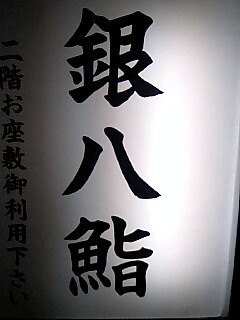 銀八鮨
二階お座敷御利用下さい